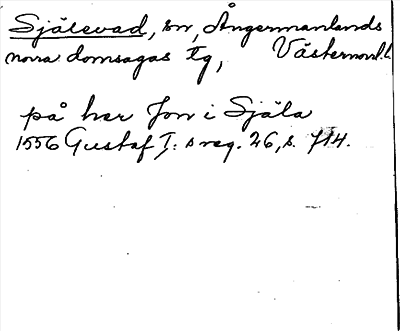 Själevad, sn, Ångermanlands
norra domsagas tg, Västernorrl. l.
på her Jon i Själa
1556 Gustaf I: s reg. 26, s. 714.